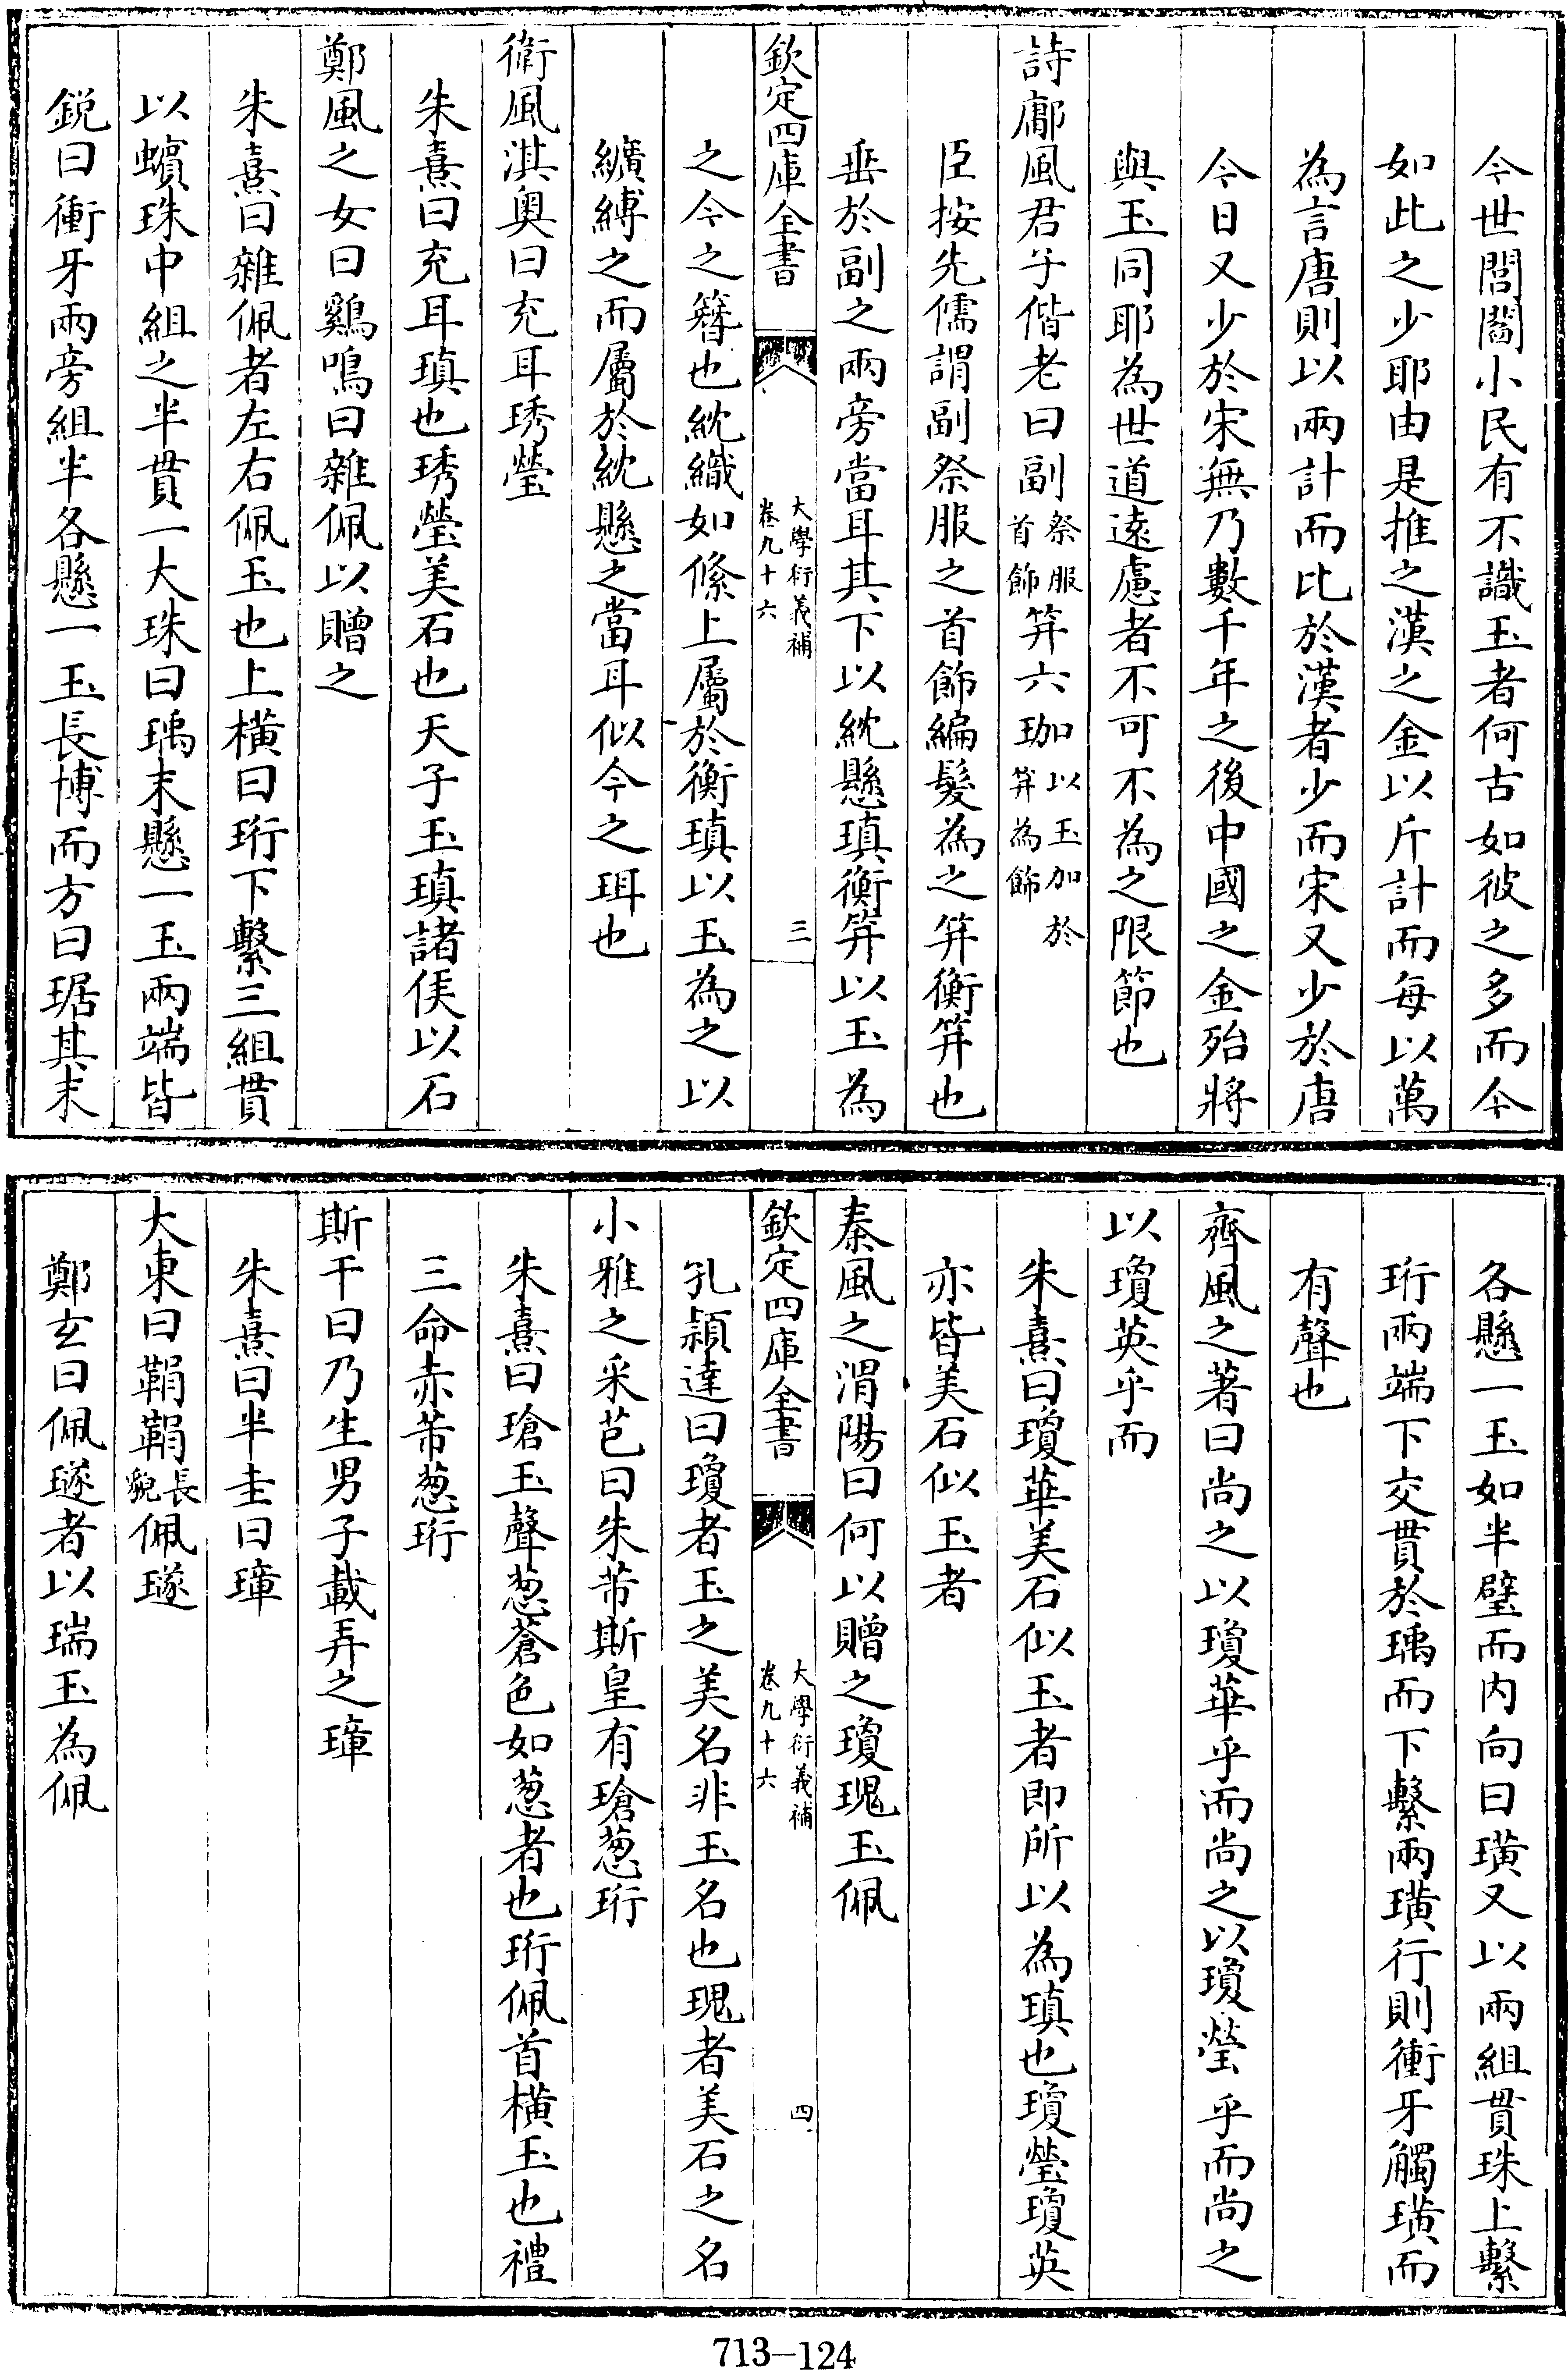 今世閭閻小民有不識玉者何古如彼之多而今
如此之少耶由是推之漢之金以斤計而每以萬
為言唐則以兩計而比於漢者少而宋又少於唐
今日又少於宋無乃數千年之後中國之金殆將
與玉同耶為世道遠慮者不可不為之限節也
詩鄘風君子偕老曰副祭服首飾笄六珈以玉加於笄為飾
臣按先儒謂副祭服之首飾編髮為之笄衡笄也
垂於副之兩旁當耳其下以紞懸瑱衡笄以玉為
欽定四庫全書
大學衍義補
卷九十六
三
之今之簪也紞織如絛上屬於衡瑱以玉為之以
纊縛之而屬於紞懸之當耳似今之珥也
衛風淇奥曰充耳琇瑩
朱熹曰充耳瑱也琇瑩美石也天子玉瑱諸侯以石
鄭風之女曰鷄鳴曰雜佩以贈之
朱熹曰雜佩者左右佩玉也上橫曰珩下繫三組貫
以蠙珠中組之半貫一大珠曰瑀末懸一玉兩端皆
鋭曰衝牙兩旁組半各懸一玉長博而方曰琚其末
各懸一玉如半璧而内向曰璜又以兩組貫珠上繫
珩兩端下交貫於瑀而下繫兩璜行則衝牙觸璜而
有聲也
齊風之著曰尚之以瓊華乎而尚之以瓊瑩乎而尚之
以瓊英乎而
朱熹曰瓊華美石似玉者即所以為瑱也瓊瑩瓊英
亦皆美石似玉者
秦風之渭陽曰何以贈之瓊瑰玉佩
欽定四庫全書
大學衍義補
卷九十六
四
孔頴達曰瓊者玉之美名非玉名也瑰者美石之名
小雅之采芑曰朱芾斯皇有瑲葱珩
朱熹曰瑲玉聲葱蒼色如葱者也珩佩首橫玉也禮
三命赤芾葱珩
斯干曰乃生男子載弄之璋
朱熹曰半圭曰璋
大東曰鞙鞙長貌佩璲
鄭玄曰佩璲者以瑞玉為佩
713-124